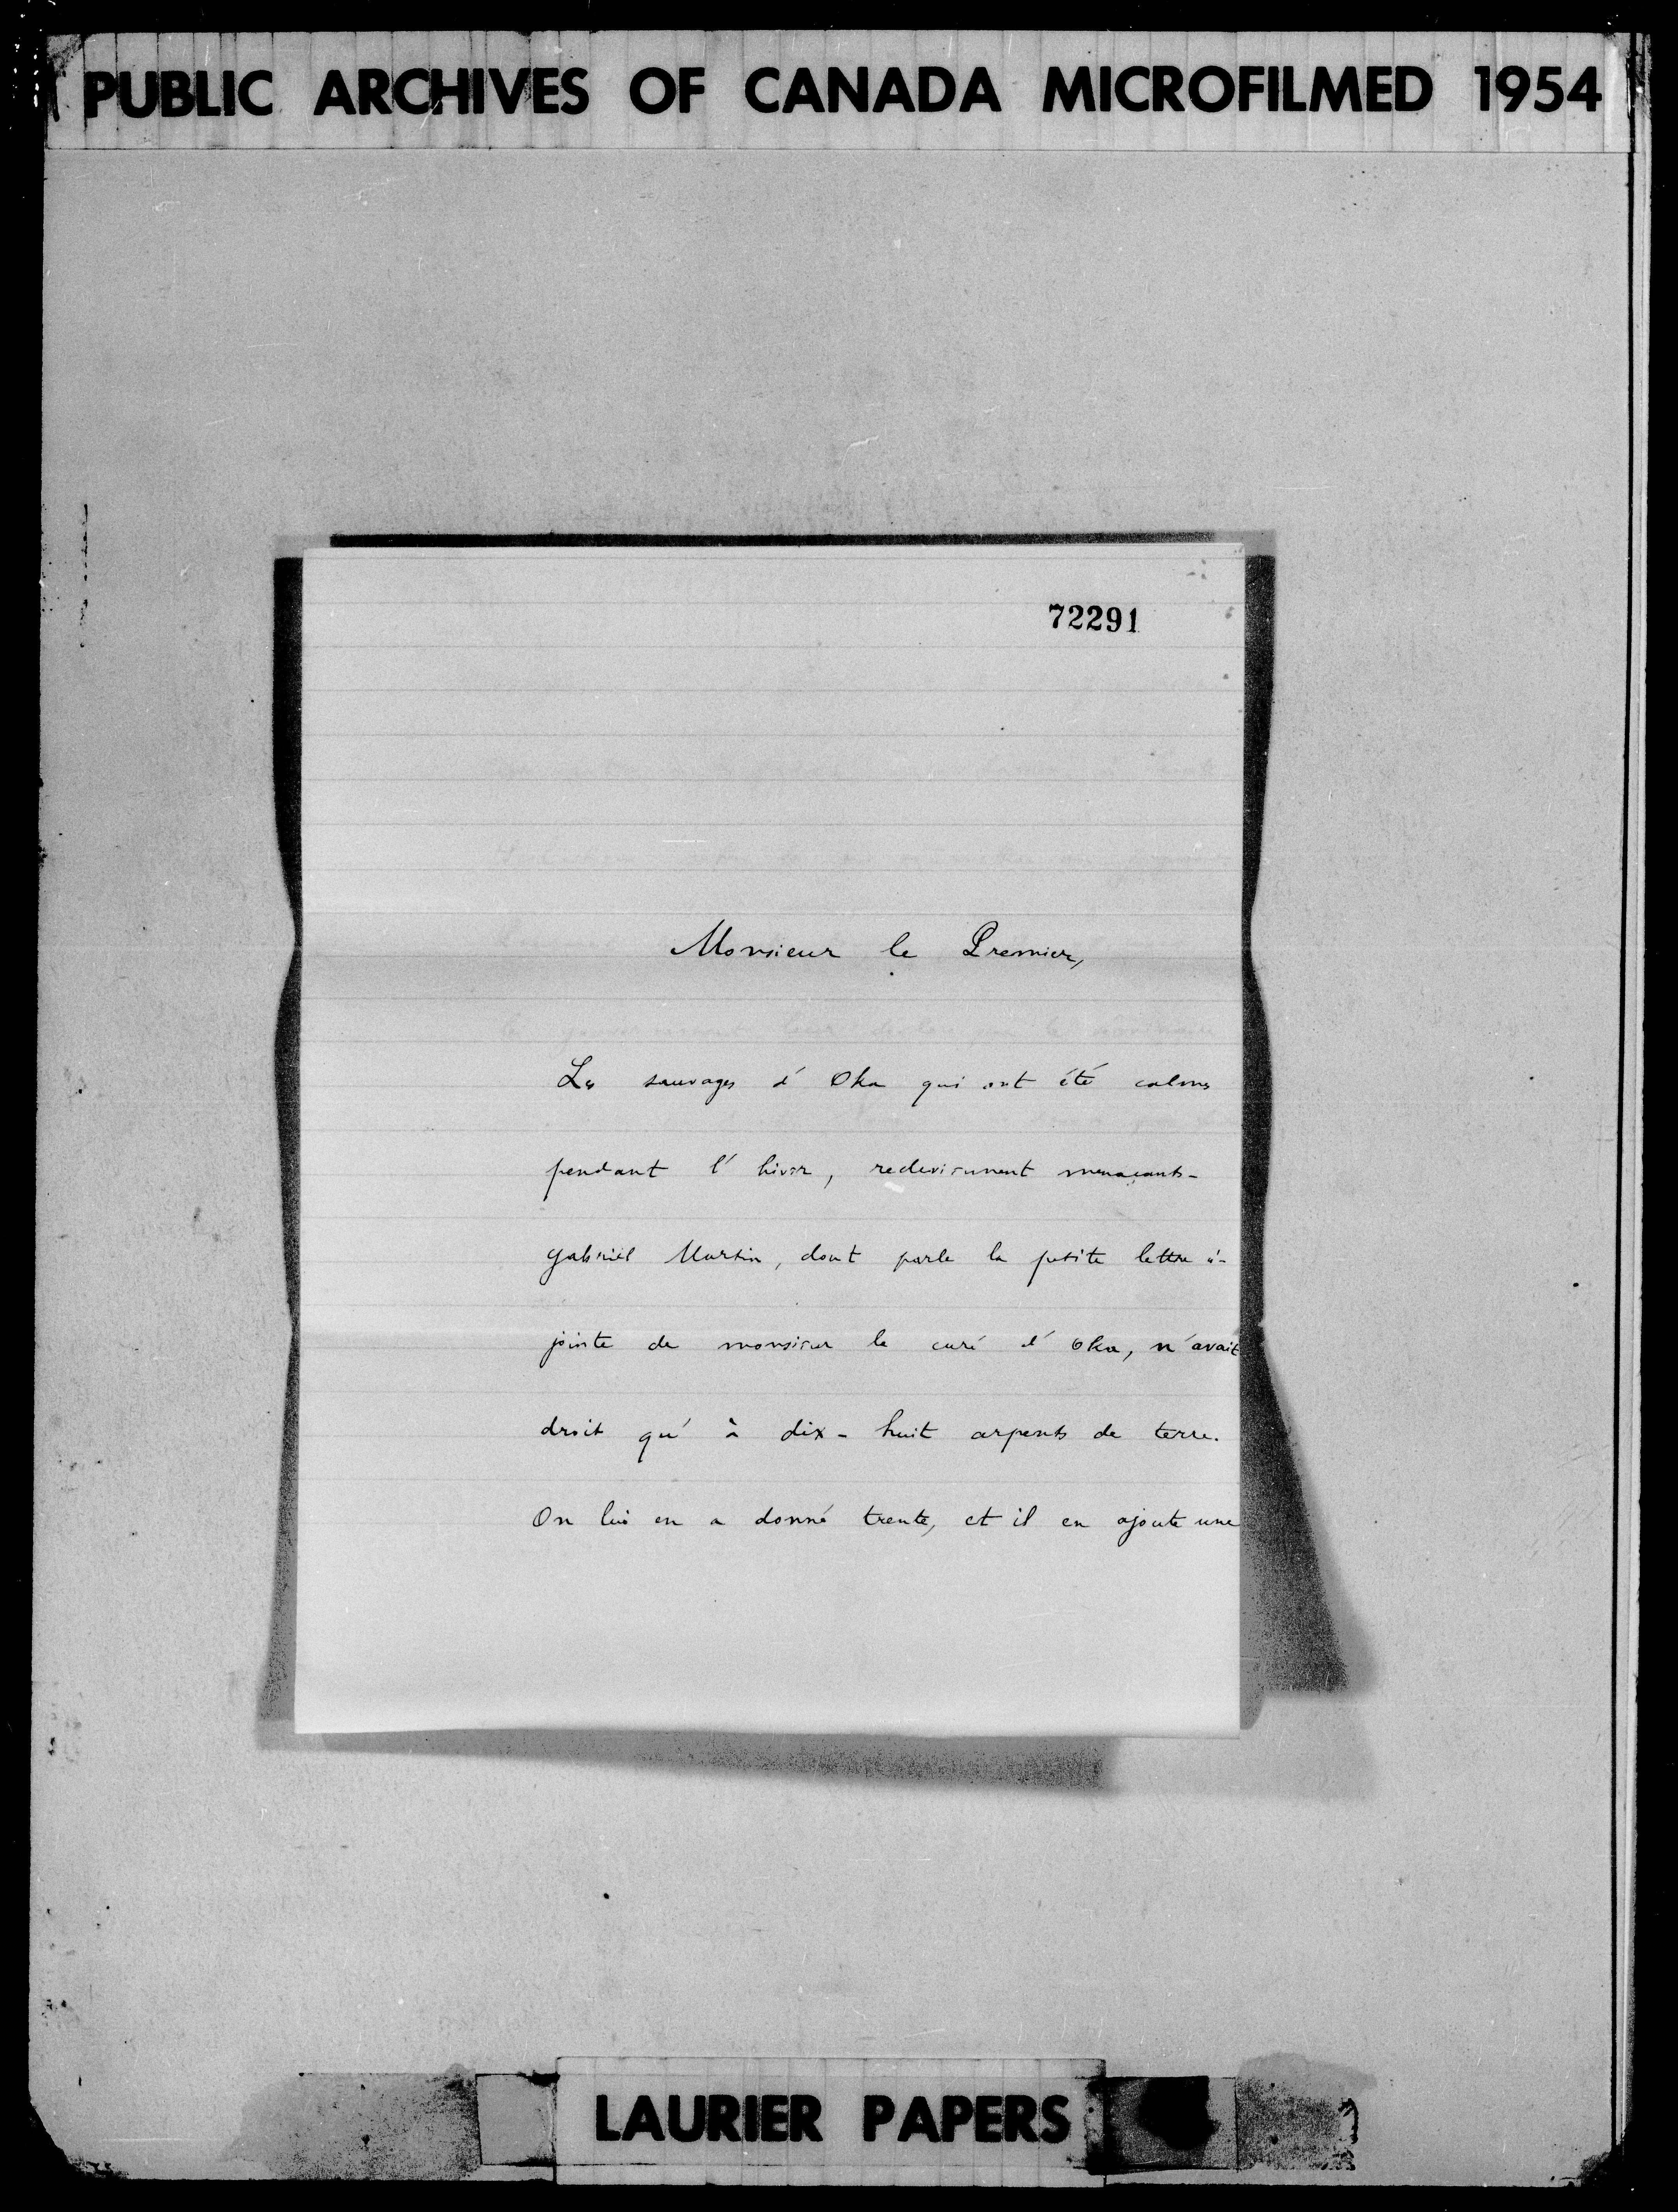 PUBLIC ARCHIVES OF CANADA MICROFILMED 1954
72291
Monsieur le Premier,
Les sauvages d'Oka qui ont été calmes
pendant l'hiver, redeviennent menaçants-
Gabriel Martin, dont parle la petite lettre ci-
jointe de monsieur le curé d'Oka, n'avait
droit qu'à dix-huit arpents de terre.
On lui en a donné trente, et il en ajoute une
LAURIER PAPERS